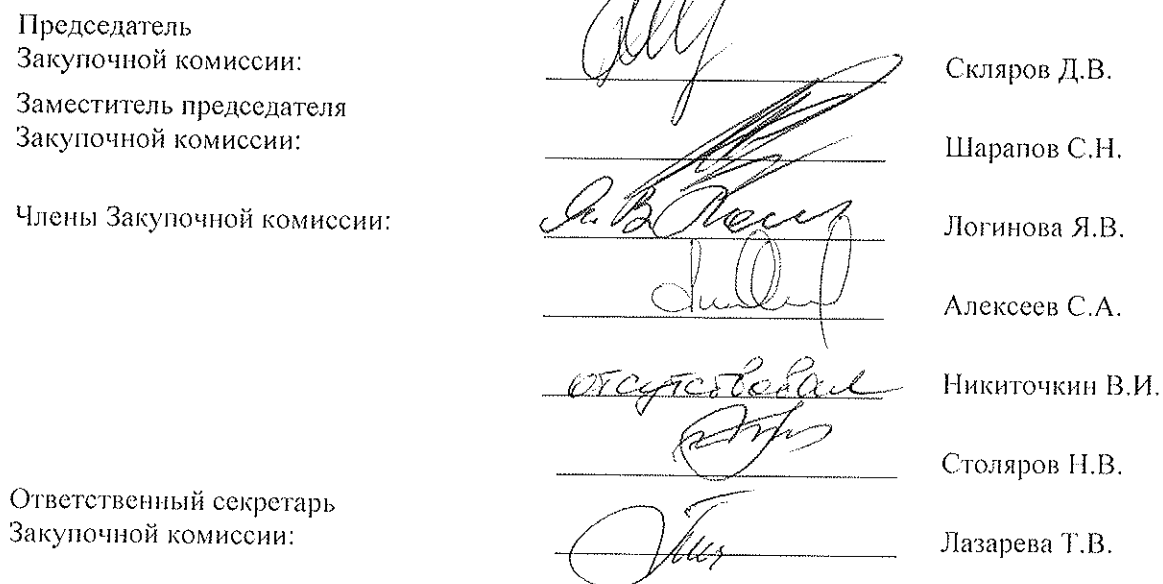 Председатель
Закупочной комиссии:
Скляров Д.В.
Заместитель председателя
Закупочной комиссии:
Шарапов С.Н.
Члены Закупочной комиссии:
Логинова Я.В.
Алексеев С.А.
отсутствовал Никиточкин В.И.
Столяров Н.В.
Ответственный секретарь
Закупочной комиссии:
Лазарева Т.В.